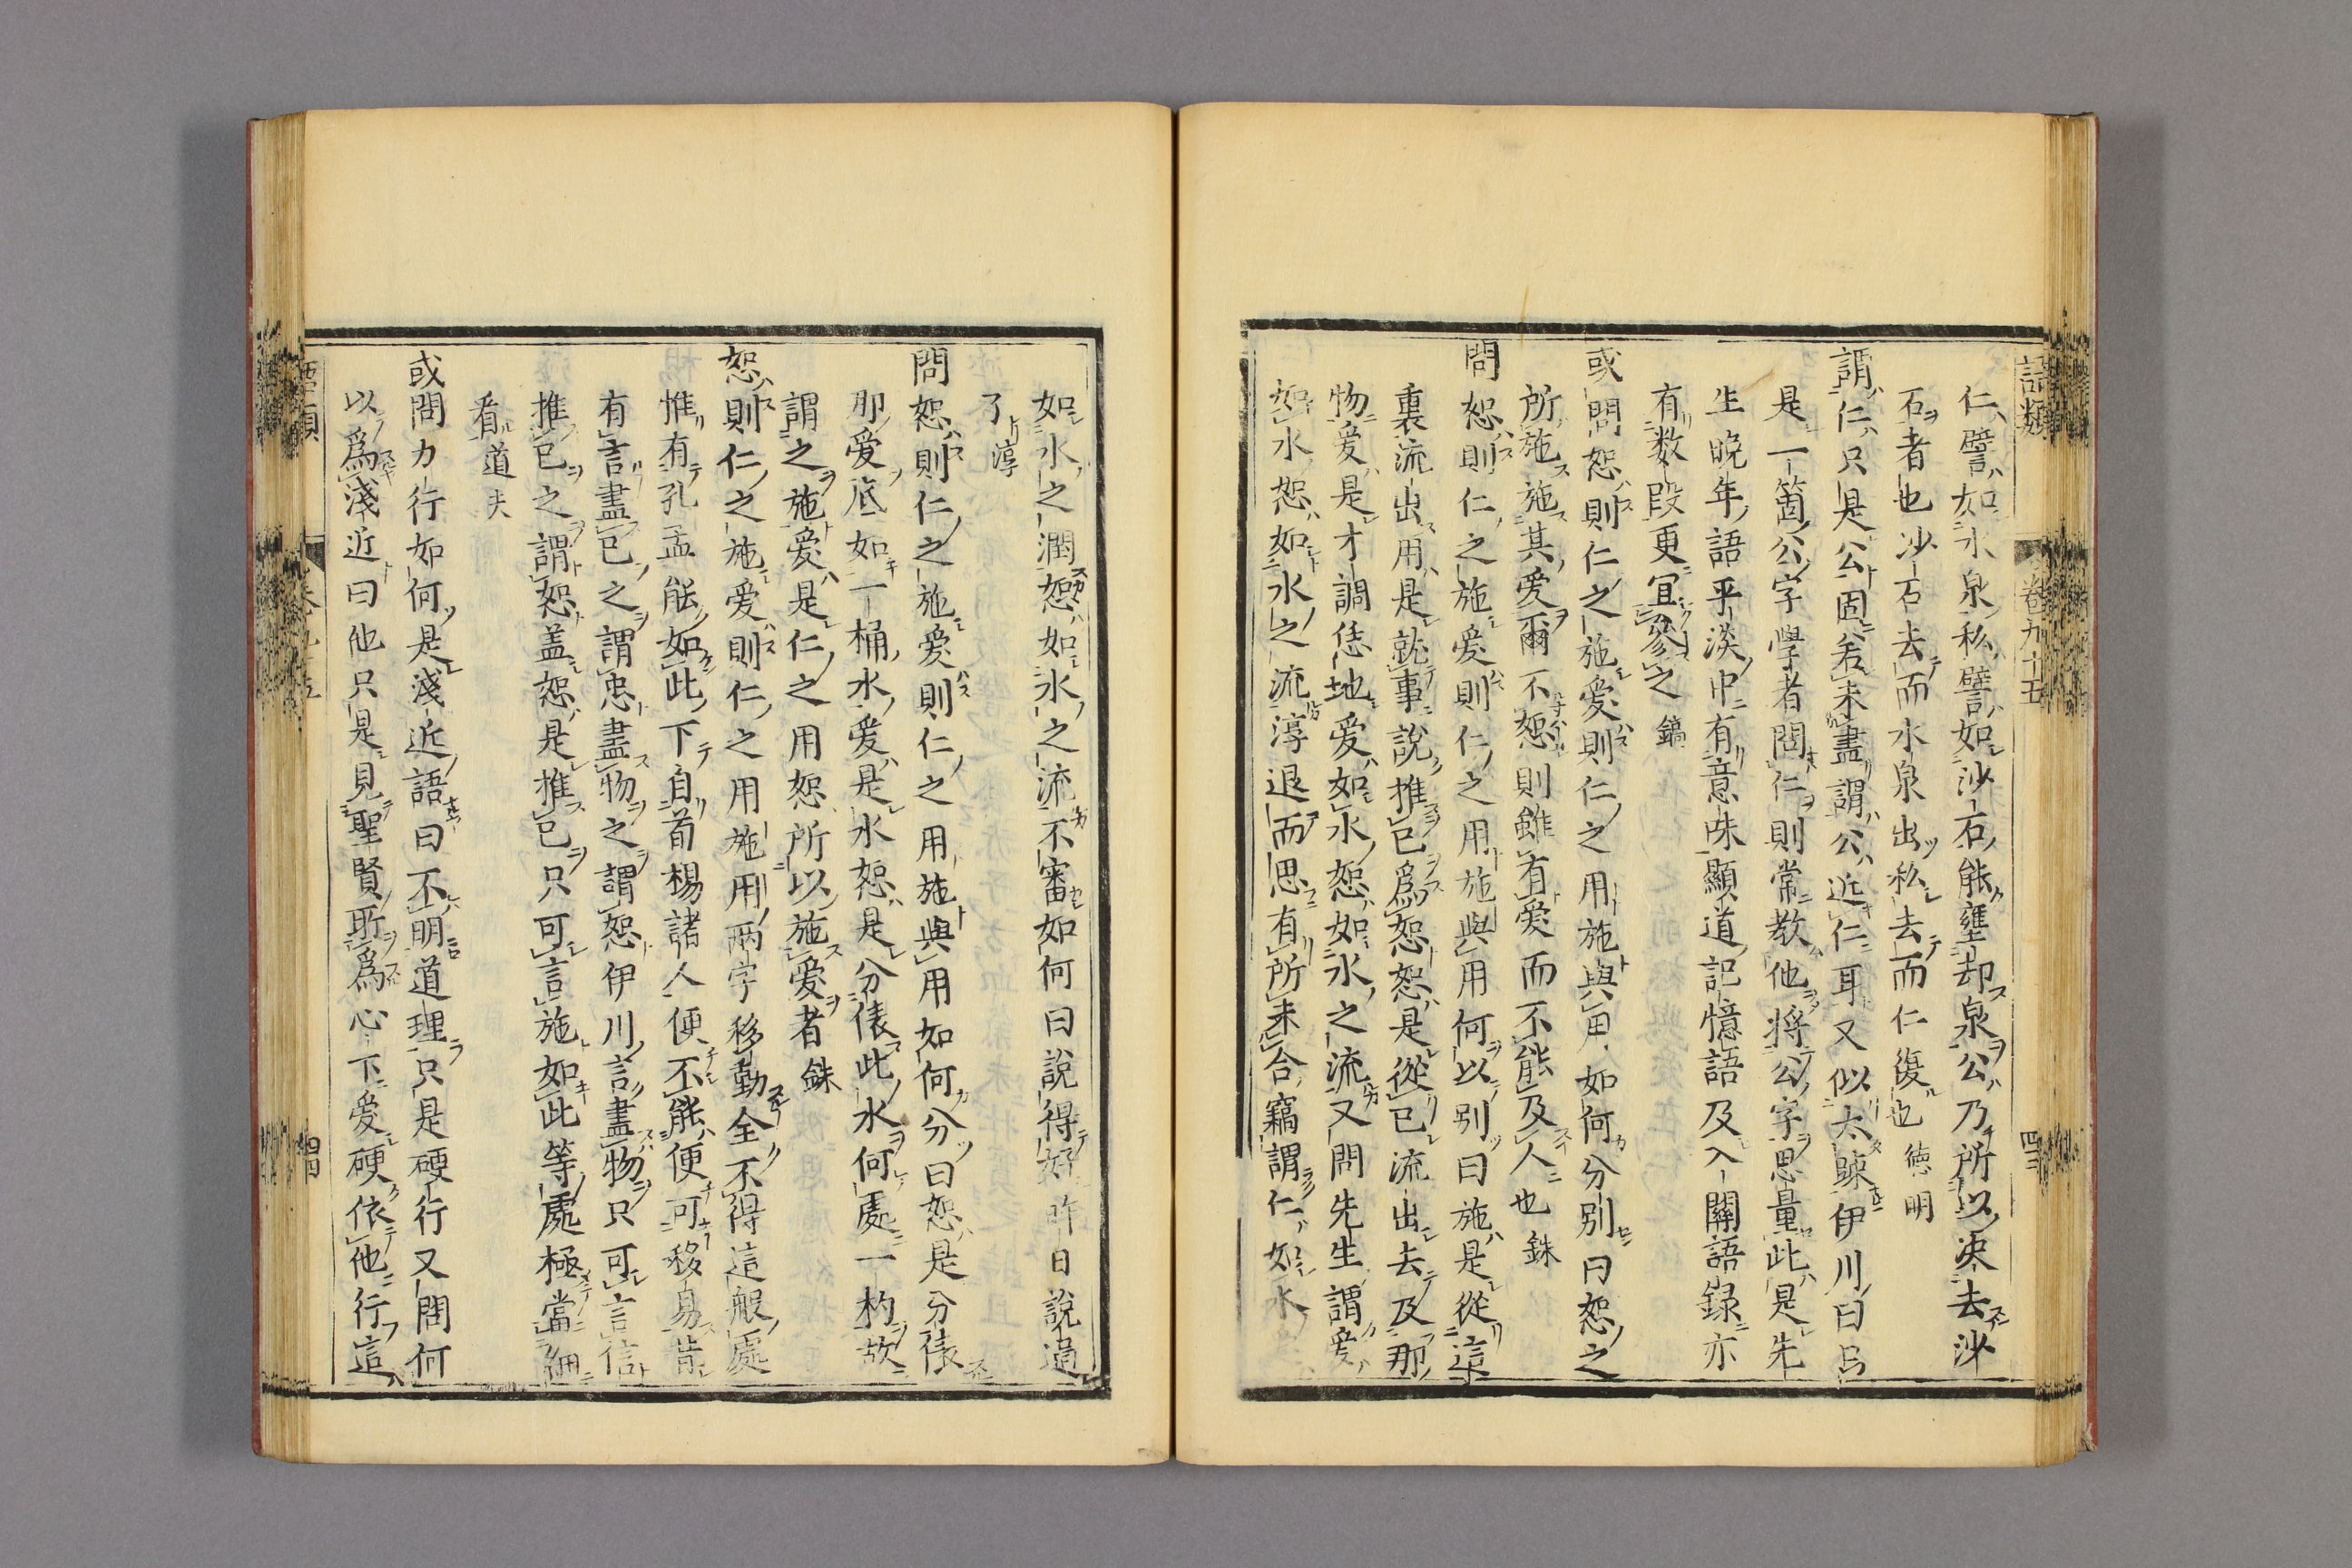 語類 卷九十五 四十三
仁譬如水泉私譬如沙石能壅却泉公乃所以决去沙
石者也沙石去而水泉出私去而仁復也德明
謂仁只是公固若未盡謂公近仁耳又似太踈伊川曰
是一箇公字學者問仁則常教他將公字思量此是先
生晚年語平淡中有意味顯道記憶語及入關語録亦
有数段更宜參之鎬
或問恕則仁之施愛則仁之用施與用如何分別曰恕之
所施施其愛爾不恕則雖有愛而不能及人也銖
問恕則仁之施愛則仁之用施與用何以別曰施是從這
裏流出用是就事說推己爲恕恕是從己流出去及那
物愛是才調恁地愛如水恕如水之流又問先生謂愛
如水恕如水之流淳退而思有所未合竊謂仁如水愛
如水之潤恕如水之流不審如何曰說得好昨日說過
了淳
問恕則仁之施愛則仁之用施與用如何分曰恕是分俵
那愛底如一桶水愛是水恕是分俵此水何處一杓故
謂之施愛是仁之用恕所以施愛者銖
恕則仁之施愛則仁之用施用兩字移動全不得這般處
惟有孔孟能如此下自荀楊諸人便不能便可移易昔
有言盡己之謂忠盡物之謂恕伊川言盡物只可言信
推己之謂恕盖恕是推己只可言施如此等處極當細
看道夫
或問力行如何是淺近語曰不明道理只是硬行又問何
以爲淺近曰他只是見聖賢所爲心下愛硬依他行這